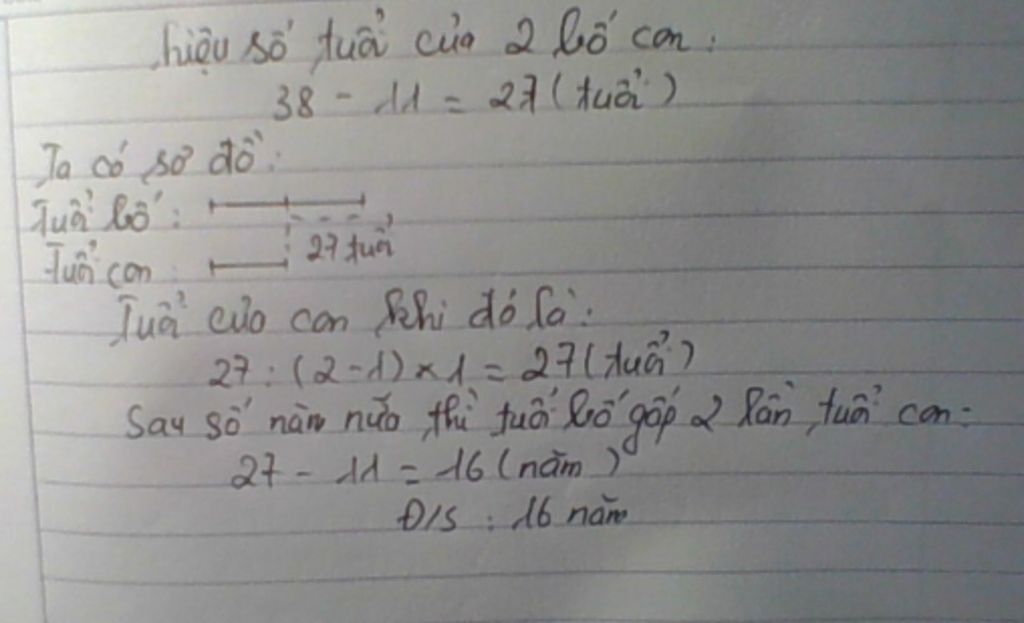 hiệu số tuổi của 2 bố con:
38 - 11 = 27 (tuổi)
Ta có sơ đồ:
Tuổi bố:
27 tuổi
Tuổi con:
Tuổi của con khi đó là:
27 : (2 - 1) × 1 = 27 (tuổi)
Sau số năm nữa thì tuổi bố gấp 2 lần tuổi con:
27 - 11 = 16 (năm)
Đ/S : 16 năm